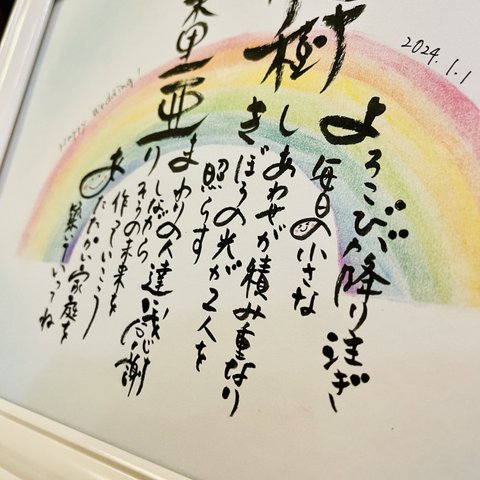 2024.1.1
Happy Wedding!
樹
里亜
よろこび降り注ぎ
毎日の小さな
しあわせが積み重なり
きぼうの光が2人を
照らす
まわりの人達に感謝
しながら
りそうの未来を
作っていこう
あたたかい家庭を
築いていってね